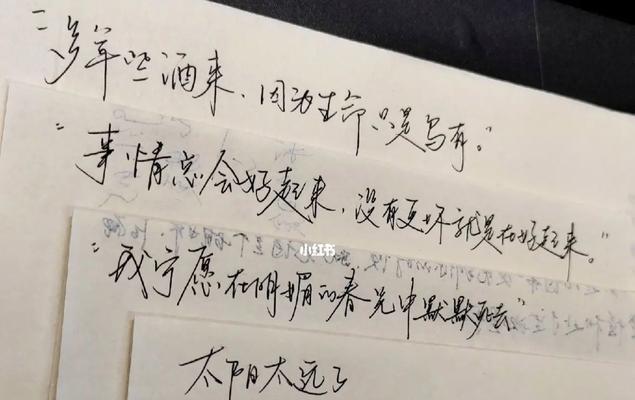 “多拿些酒来，因为生命只是乌有。”
“事情总会好起来，没有更坏就是在好起来。”
小红书
“我宁愿在明媚的春光中默默死去”
太阳太远了